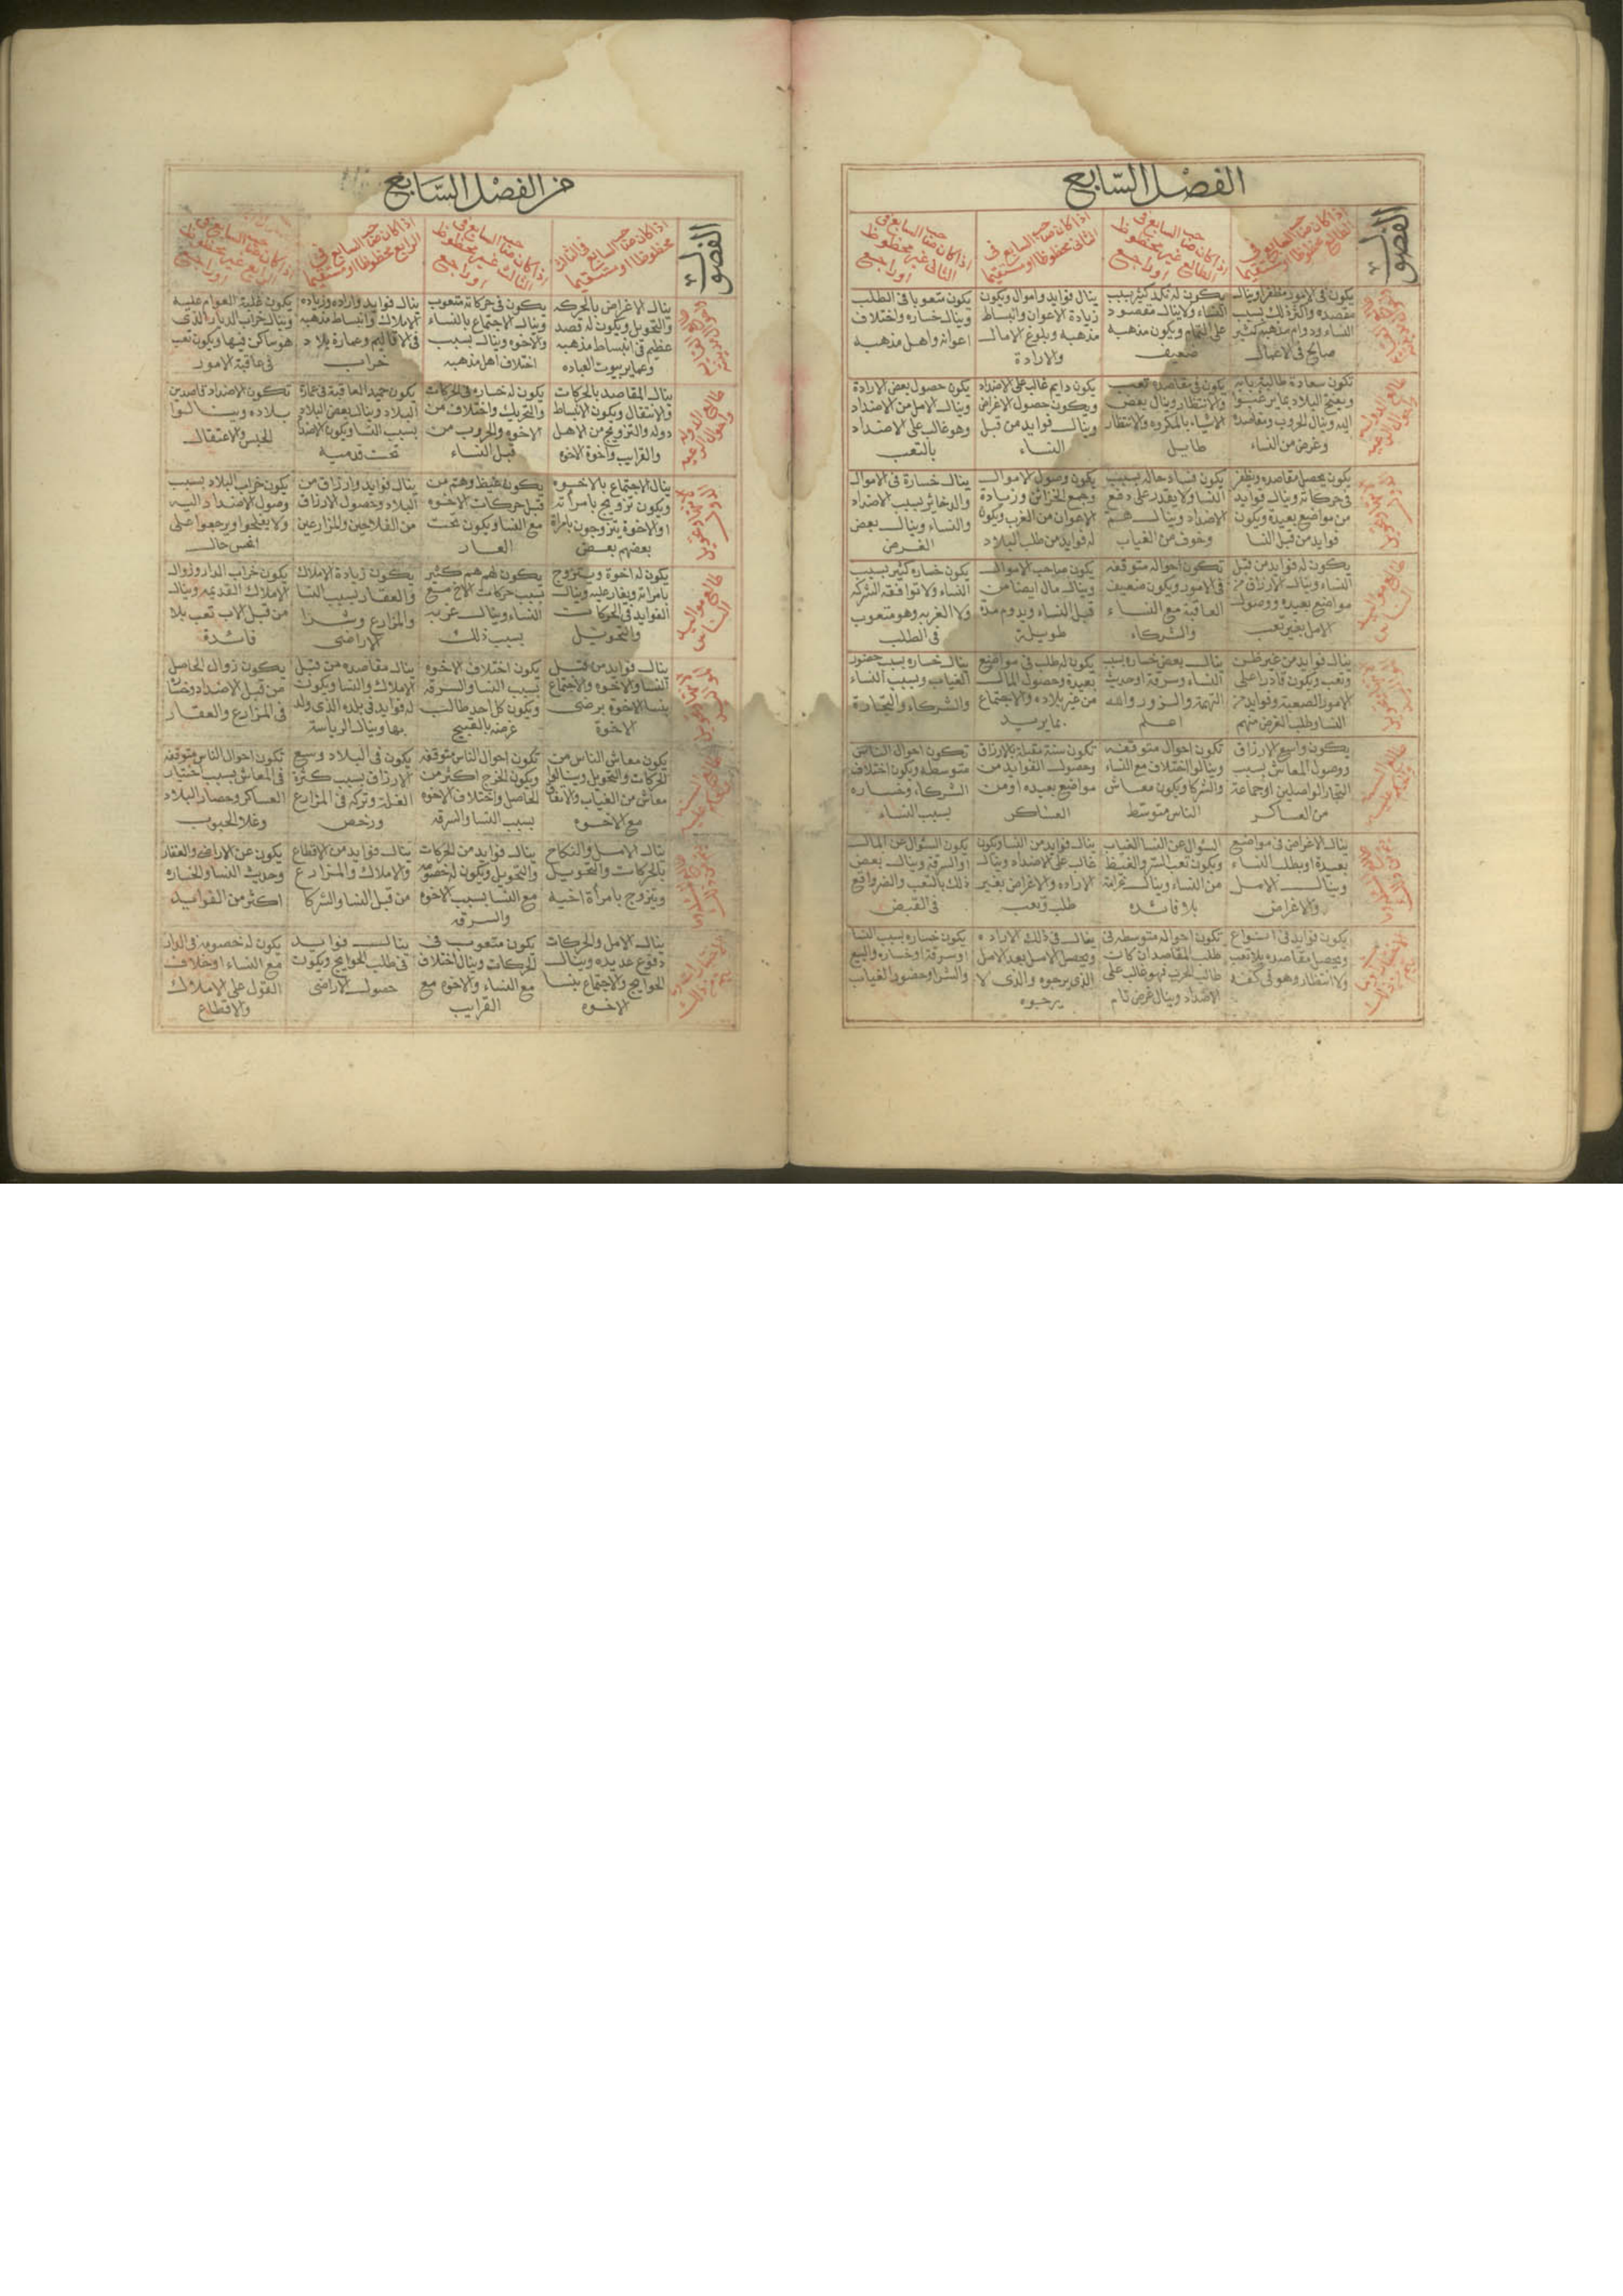 الفصل السابع
الفصول
اذا كان صاحب السابع فى
الطالع محظوظا او مستقيما
اذا كان صاحب السابع فى
الطالع غير محظوظ
او راجع
اذا كان صاحب السابع فى
الثانى محظوظا او مستقيما
اذا كان صاحب السابع فى
الثانى غير محظوظ
او راجع
يكون فى الامور مظفرا وينال
مقصده واكثر ذلك بسبب
النساء ودوام مذهبه كثير
صالح فى الاعمال
يكون له نكد كثير بسبب
النساء ولا ينال مقصود
على التمام ويكون مذهبه
ضعيف
ينال فوايد واموال ويكون
زيادة الاعوان وانبساط
مذهبه وبلوغ الامال
والارادة
يكون متعوبا فى الطلب
وينال خساره واختلاف
اعوانه واهل مذهبه
طالع الدولة
تكون سعادة طالبة بابه
ويفتح البلاد بما يرغبوا
اليه وينال الحروب ومقاصده
وغرض من النساء
يكون فى مقاصده تعب
والانتظار وينال بعض
الاشياء بالمكروه والانتظار
طايل
يكون دايم غالب على الاضداد
ويكون حصول الاغراض
وينال فوايد من قبل
النساء
يكون حصول بعض الارادة
وينال الامل من الاضداد
وهو غالب على الاضداد
بالتعب
يكون يحصل مقاصده ويظفر
فى حركاته وينال فوايد
من مواضع بعيدة ويكون
فوايد من قبل النسا
يكون فساد حاله بسبب
النسا ولا يقدر على دفع
الاضداد وينال هم
وخوف من الغياب
يكون وصول الاموال
وجمع الخزائن وزيادة
الاعوان من الغرب ويكون
له فوايد من طلب البلاد
ينال خسارة فى الاموال
والدخائر بسبب الاضداد
والنساء وينال بعض
الغرض
طالع مواليد
الناس
يكون له فوايد من قبل
النساء وينال الارزاق من
مواضع بعيده ووصول
الامل بغير تعب
تكون احواله متوقفه
فى الامور ويكون ضعيف
العاقبة مع النساء
والشركاء
يكون صاحب الاموال
وينال مال ايضا من
قبل النساء ويدوم مدة
طويلة
يكون خساره كثير بسبب
النساء ولا توافقه الشركه
ولا الغربه وهو متعوب
فى الطلب
ينال فوايد من غير ظن
وتعب ويكون قادرا على
الامور الصعبة وفوايد من
النسا وطلب الغرض منهم
ينال بعض خساره بسبب
النساء وسرقة او حديث
التهمة والزور والله
اعلم
يكون له طلب فى مواضع
بعيدة وحصول المال
من غير بلاده والاجتماع
بما يريد
ينال خساره بسبب حضور
الغياب وبسبب النساء
والشركاء والتجارة
يكون واسع الارزاق
ووصول المعاش بسبب
التجار الواصلين او جماعة
من العساكر
تكون احوال متوقفه
وينالوا اختلاف مع النساء
والشركا ويكون معاش
الناس متوسط
تكون سنة مقبلة بالارزاق
وحصول الفوايد من
مواضع بعيده او من
العساكر
تكون احوال الناس
متوسطه ويكون اختلاف
الشركاء وخساره
بسبب النساء
ينال الاغراض فى مواضع
بعيدة او بطلب النساء
وينال الامل
والاغراض
السؤال عن النسا الغياب
ويكون تعب السر والغيظ
من النساء وينال غرامة
بلا فائده
ينال فوايد من النسا ويكون
غالب على الاضداد وينال
الاراده والاغراض بغير
طلب وتعب
يكون السؤال عن المال
او السرقة وينال بعض
ذلك بالتعب والضر واقع
فى القبض
يكون فوايد فى انواع
ويحصل مقاصده بلا تعب
ولا انتظار وهو فى كفه
تكون احواله متوسطه فى
طلب المقاصد ان كان
طالب الحرب فهو غالب على
الاضداد وينال غرض تام
ينال فى ذلك الاراده
ويحصل الامل بعد الامل
الذى يرجوه والذى لا
يرجوه
يكون خساره بسبب النسا
او سرقة او خساره والبيع
والشرا وحضور الغياب
من الفصل السابع
الفصول
اذا كان صاحب السابع فى الثالث
محظوظا او مستقيما
اذا كان صاحب السابع فى
الثالث غير محظوظ
او راجع
اذا كان صاحب السابع فى
الرابع محظوظا او مستقيما
اذا كان صاحب السابع فى
الرابع غير محظوظ
او راجع
ينال الاغراض بالحركه
والتحويل ويكون له قصد
عظيم فى انبساط مذهبه
وعماير بيوت العباده
يكون فى حركاته متعوب
وينال الاجتماع بالنساء
والاخوه وينال بسبب
اختلاف اهل مذهبه
ينال فوايد واراده وزياده
الاملاك وانبساط مذهبه
فى الاقاليم وعمارة بلاد
خراب
يكون غلبة العوام عليه
وينال خراب الديار الذى
هو ساكن فيها ويكون تعب
فى عاقبة الامور
ينال المقاصد بالحركات
والانتقال ويكون انبساط
دوله والتزويج من الاهل
والقرايب واخوة الاخوه
يكون له خساره فى الحركات
والتحريك واختلاف من
الاخوه والحروب من
قبل النساء
يكون حميد العاقبة فى عمارة
البلاد وينال بعض البلاد
بسبب النسا ويكون الاضداد
تحت قدميه
تكون الاضداد قاصدين
بلاده وينالوا
الحبس والاعتقال
ينال الاجتماع بالاخوه
ويكون تزويج بامراته
او الاخوة يتزوجون بامراة
بعضهم بعض
يكون غيظ وهم من
قبل حركات الاخوه
مع النسا ويكون تحت
العار
ينال فوايد وارزاق من
البلاد وحصول الارزاق
من الفلاحين والمزارعين
يكون خراب البلاد بسبب
وصول الاضداد اليه
ولا يفلحوا ويرجعوا على
انحس حال
يكون له اخوة ويتزوج
بامراته ويغار عليه وينال
الفوايد فى الحركات
والتحويل
يكون لهم هم كثير
بسبب حركات الاخ مع
النساء وينال غربه
بسبب ذلك
يكون زيادة الاملاك
والعقار بسبب النسا
والمزارع وشرا
الاراضى
يكون خراب الدار وزوال
الاملاك القديمه وينال
من قبل الاب تعب بلا
فائدة
ينال فوايد من قبل
النسا والاخوه والاجتماع
بنسا الاخوه برضى
الاخوة
يكون اختلاف الاخوه
بسبب النسا والسرقه
ويكون كل احد طالب
غرضه بالقبيح
ينال مقاصده من قبل
الاملاك والنسا ويكون
له فوايد فى بلده الذى ولد
بها وينال الرياسة
يكون زوال الحاصل
من قبل الاضداد
فى المزارع والعقار
يكون معاش الناس من
الحركات والتحويل وينالوا
معاش من الغياب والاتفاق
مع الاخوه
تكون احوال الناس متوقفه
ويكون الخرج اكثر من
الحاصل واختلاف الاخوه
بسبب النسا والسرقه
يكون فى البلاد وسع
الارزاق بسبب كثرة
الغلة وتركه فى المزارع
ورخص
تكون احوال الناس متوقفه
فى المعاش بسبب اختيار
العساكر وحصار البلاد
وغلا الحبوب
ينال الامل والنكاح
بالحركات والتحويل
ويتزوج بامراة اخيه
ينال فوايد من الحركات
والتحويل ويكون له خصومه
مع النسا بسبب الاخوه
والسرقه
ينال فوايد من الاقطاع
والاملاك والمزارع
من قبل النسا والشركا
يكون عن الاراضى والعقار
وحديث النسا والخساره
اكثر من الفوايد
ينال الامل والحركات
دفوع عديده وينال
الحوايج والاجتماع بنسا
الاخوه
يكون متعوب فى
الحركات وينال اختلاف
مع النساء والاخوه مع
القرايب
ينال فوايد
فى طلب الحوايج ويكون
حصول الاراضى
يكون له خصومه فى الدار
مع النساء او خلاف
القول على الاملاك
والاقطاع